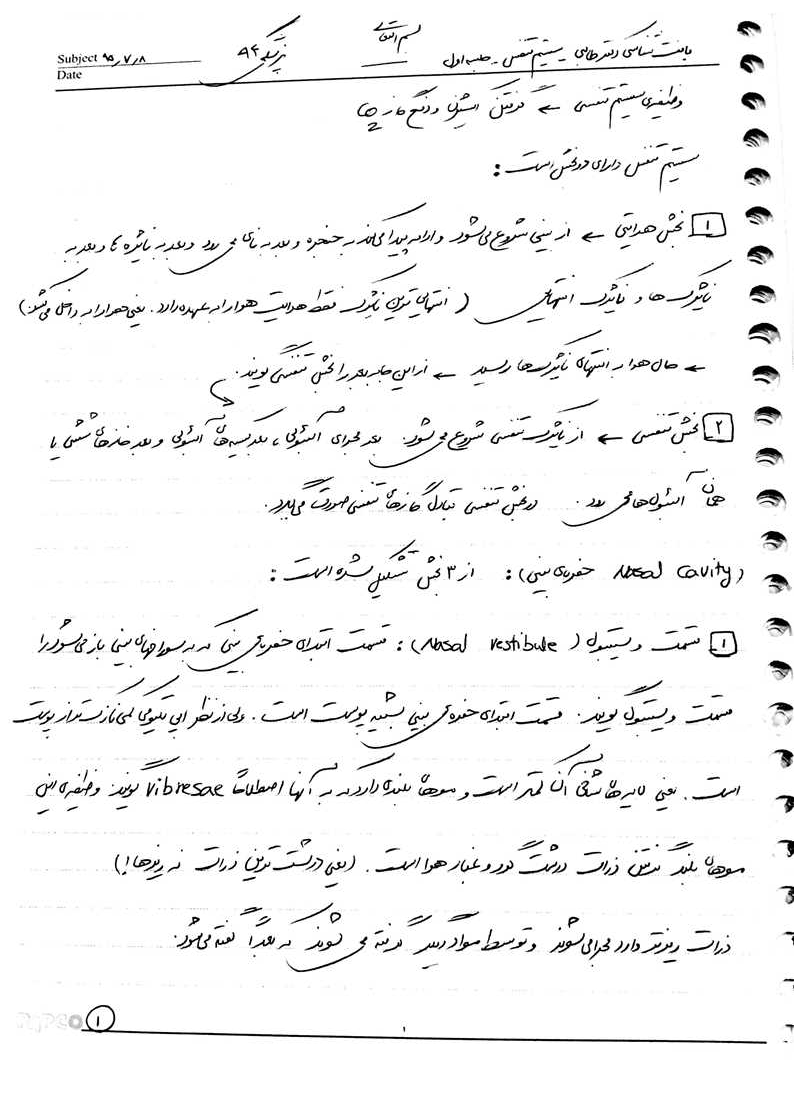 بسم الله تعالی
بافت شناسی دکتر طالبی - سیستم تنفس - جلسه اول
پزشکی ۹۴
Subject ۹۵/۷/۸
Date
وظیفه‌ی سیستم تنفسی ← گرفتن اکسیژن و دفع گازها
سیستم تنفس دارای دو بخش است:
۱ بخش هدایتی ← از بینی شروع می‌شود و ادامه پیدا می‌کند به حنجره و بعد به نای می رود و بعد به نایژه ها و بعد به
نایژک ها و نایژک انتهایی (انتهایی ترین نایژک فقط هدایت هوا را به عهده دارد. یعنی هوا را به داخل می‌کشد)
← حال هوا به انتهای نایژک‌ها رسید ← از این جا به بعد را بخش تنفسی گویند.
۲ بخش تنفسی ← از نایژک تنفسی شروع می‌شود. بعد مجرای آلوئولی، بعد کیسه‌های آلوئولی و بعد خانه‌های ششی یا
همان آلوئول‌ها می رود. در بخش تنفسی تبادل گازهای تنفسی صورت می‌گیرد.
(Nasal Cavity حفره‌ی بینی): از ۳ بخش تشکیل شده است:
۱ قسمت وستیبول (Nasal vestibule): قسمت ابتدای حفره‌ی بینی که به سوراخهای بینی باز می‌شود را
قسمت وستیبول گویند. قسمت ابتدای حفره‌ی بینی شبیه پوست است. ولی از نظر اپی تلیومی کمی نازک تر از پوست
است. یعنی لایه‌های شاخی آن کمتر است و موهای بلندی دارد که به آنها اصطلاحاً Vibresae گویند. وظیفه‌ی این
موهای بلند گرفتن ذرات درشت گرد و غبار هوا است. (یعنی درشت ترین ذرات نه ریزها!)
ذرات ریزتر وارد مجرا می‌شوند و توسط مواد دیگر گرفته می شوند که بعداً گفته می‌شود.
۱